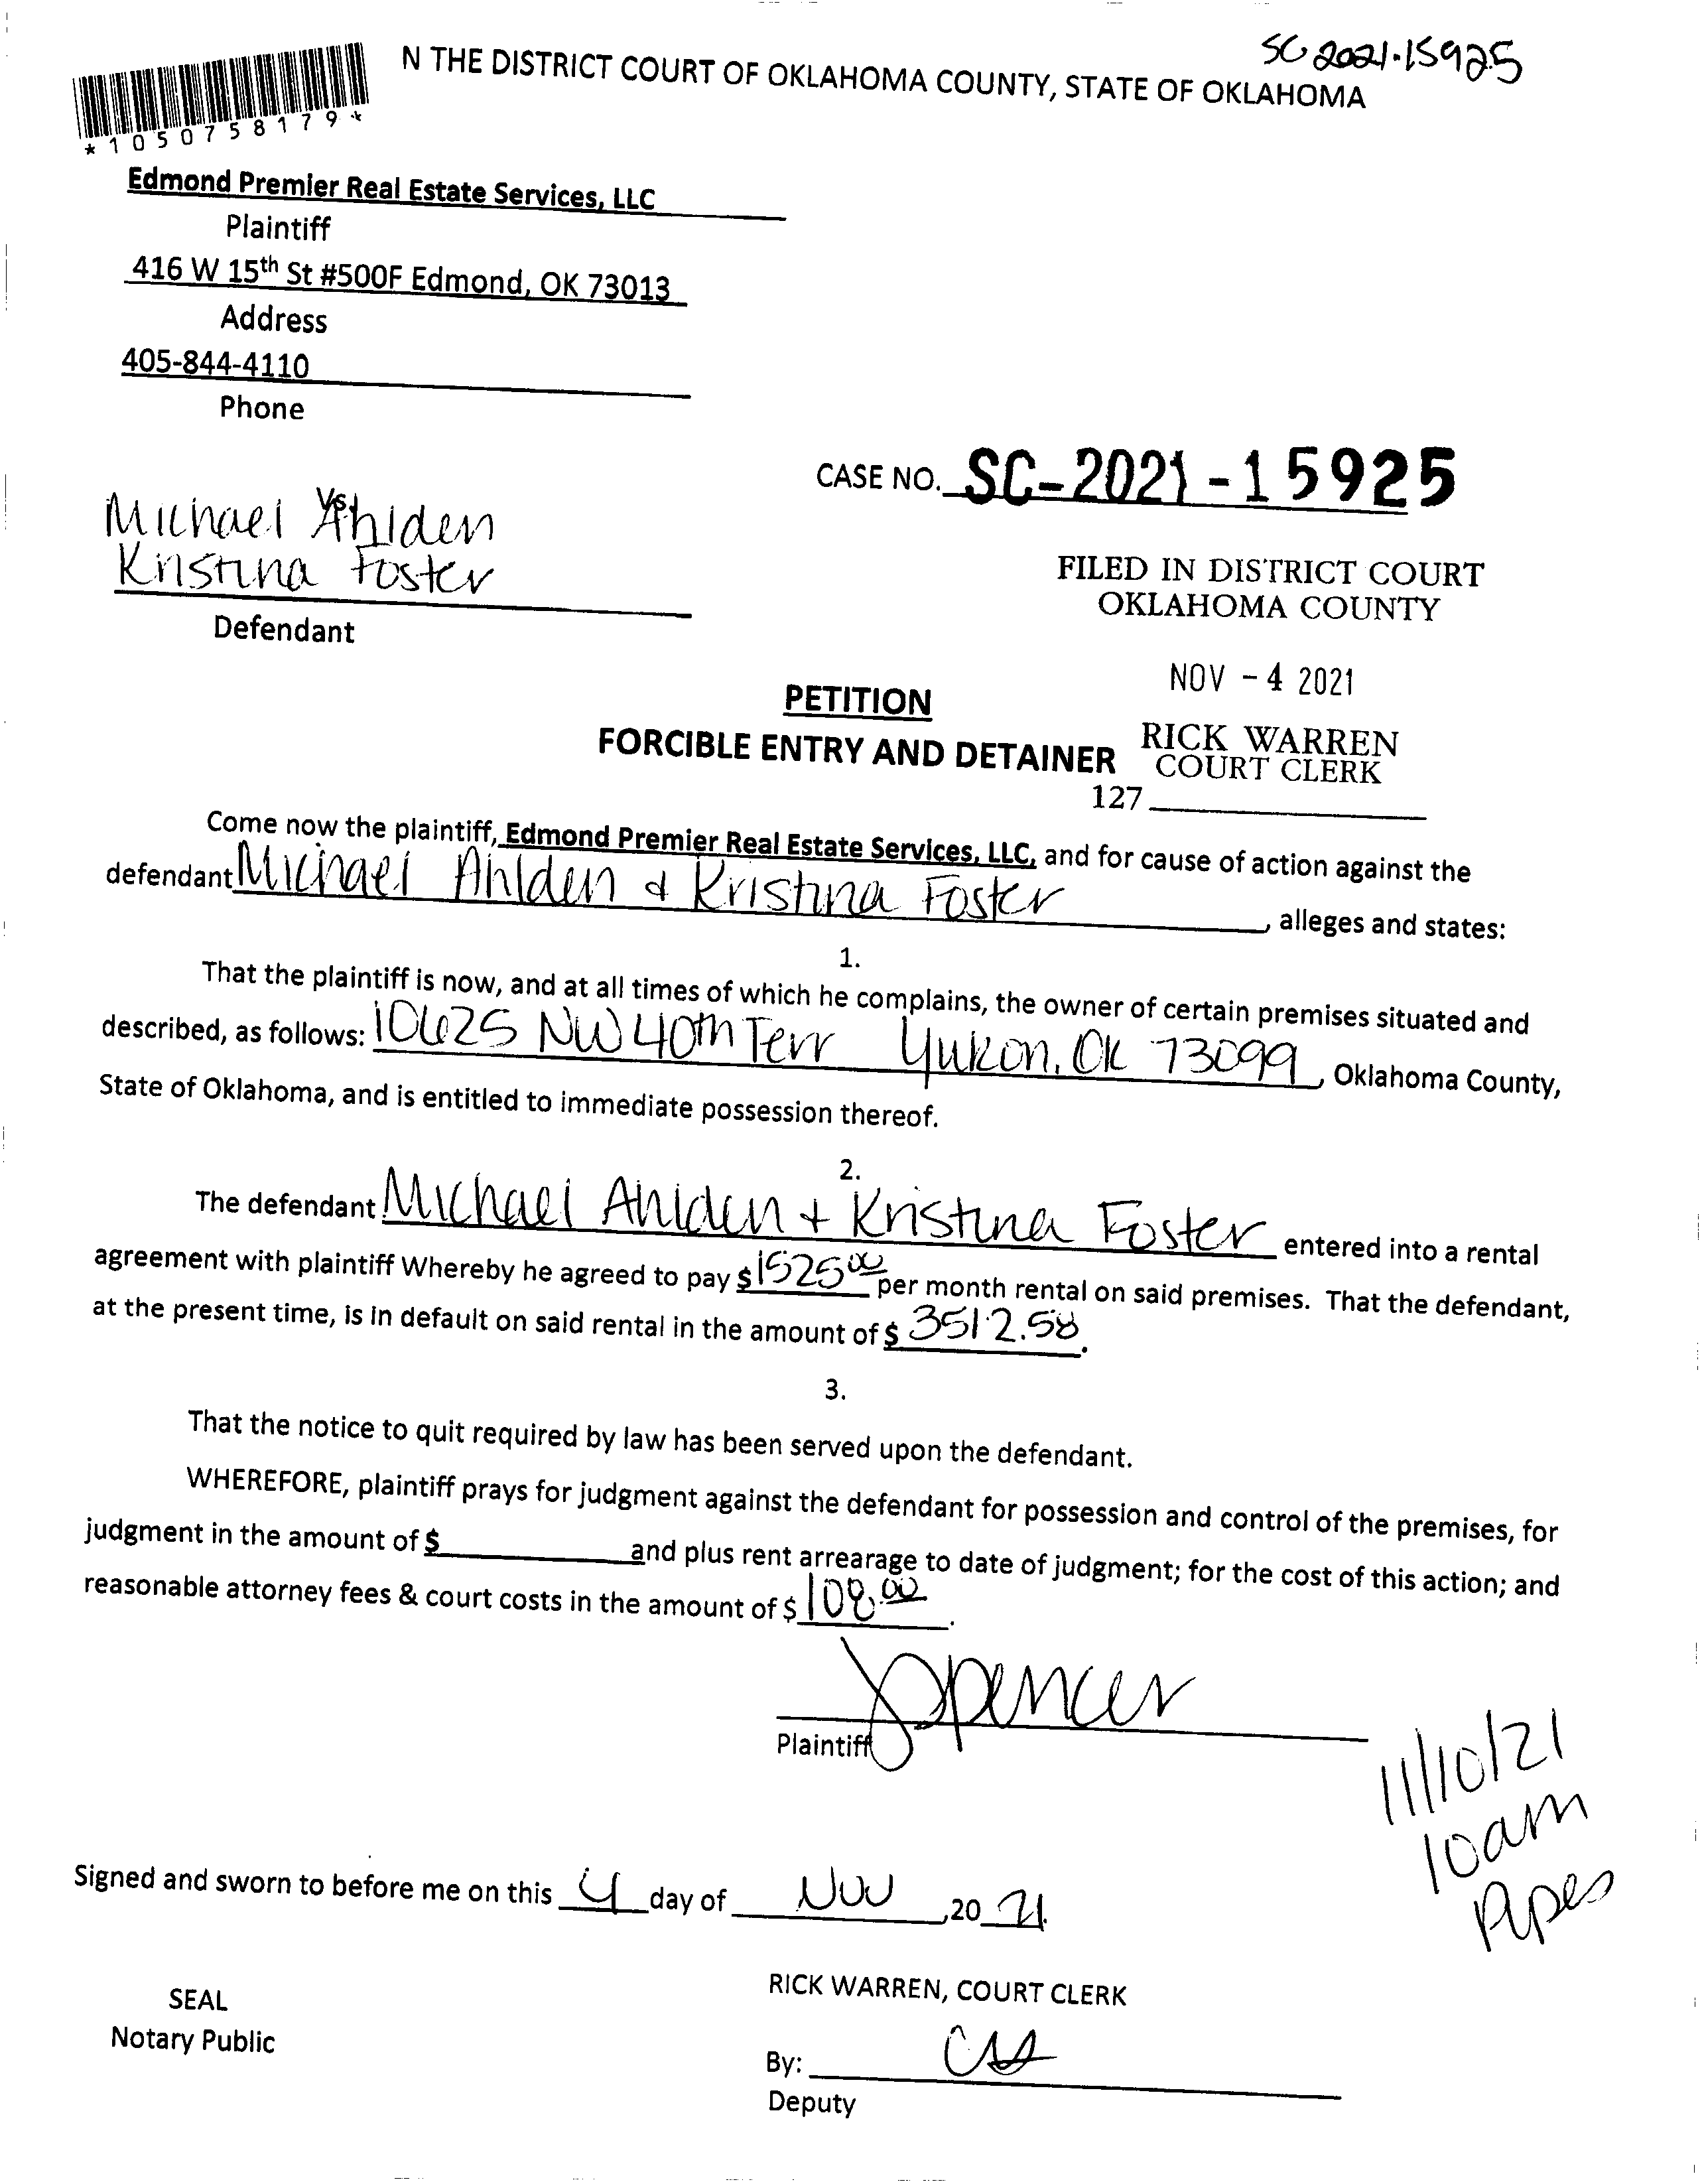 SC 2021-15925
N THE DISTRICT COURT OF OKLAHOMA COUNTY, STATE OF OKLAHOMA
*1050758179*
Edmond Premier Real Estate Services, LLC
Plaintiff
416 W 15th St #500F Edmond, OK 73013
Address
405-844-4110
Phone
CASE NO. SC-2021-15925
Vs.
Michael Ahlden
Kristina Foster
Defendant
FILED IN DISTRICT COURT
OKLAHOMA COUNTY
NOV -4 2021
PETITION
FORCIBLE ENTRY AND DETAINER
RICK WARREN
COURT CLERK
127
Come now the plaintiff, Edmond Premier Real Estate Services, LLC, and for cause of action against the
defendant Michael Ahlden & Kristina Foster, alleges and states:
1.
That the plaintiff is now, and at all times of which he complains, the owner of certain premises situated and
described, as follows: 10625 NW 40th Terr Yukon, OK 73099, Oklahoma County,
State of Oklahoma, and is entitled to immediate possession thereof.
2.
The defendant Michael Ahlden + Kristina Foster entered into a rental
agreement with plaintiff Whereby he agreed to pay $1525.00 per month rental on said premises. That the defendant,
at the present time, is in default on said rental in the amount of $ 3512.58.
3.
That the notice to quit required by law has been served upon the defendant.
WHEREFORE, plaintiff prays for judgment against the defendant for possession and control of the premises, for
judgment in the amount of $ and plus rent arrearage to date of judgment; for the cost of this action; and
reasonable attorney fees & court costs in the amount of $ 108.00.
Spencer
Plaintiff
11/10/21
10am
Pipes
Signed and sworn to before me on this 4 day of Nov, 20 21.
SEAL
Notary Public
RICK WARREN, COURT CLERK
By:
Deputy